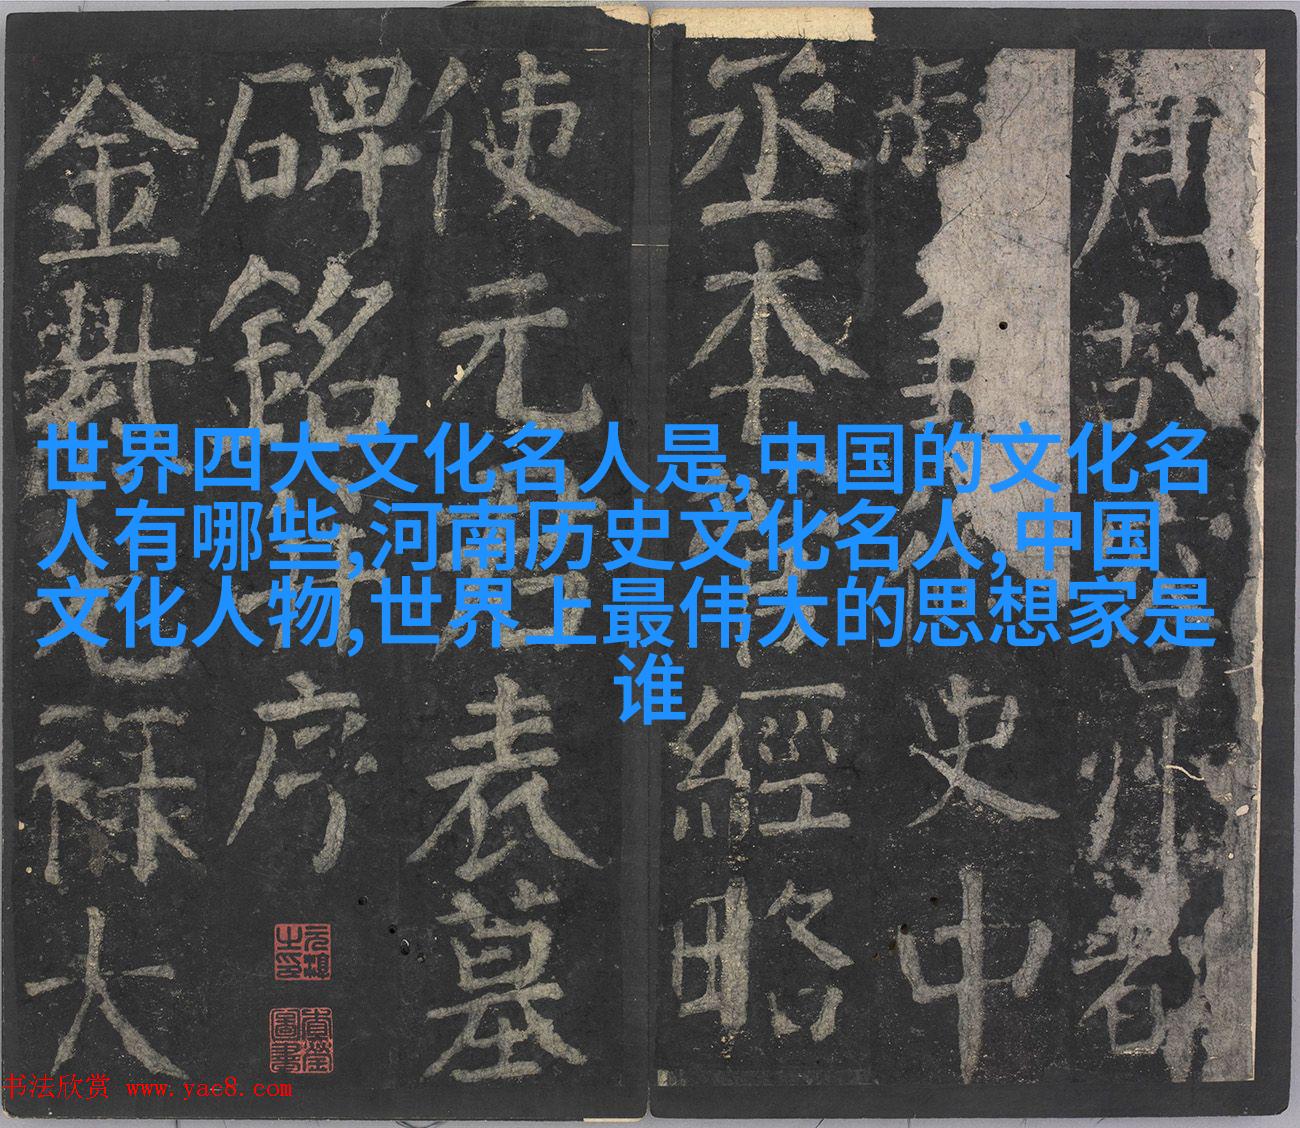 世界四大文化名人是,中国的文化名
人有哪些,河南历史文化名人,中国
文化人物,世界上最伟大的思想家是
谁
故州都
史中
丞本經略
使元君表墓
碑銘序
金祿大
书法欣赏 www.yac8.com